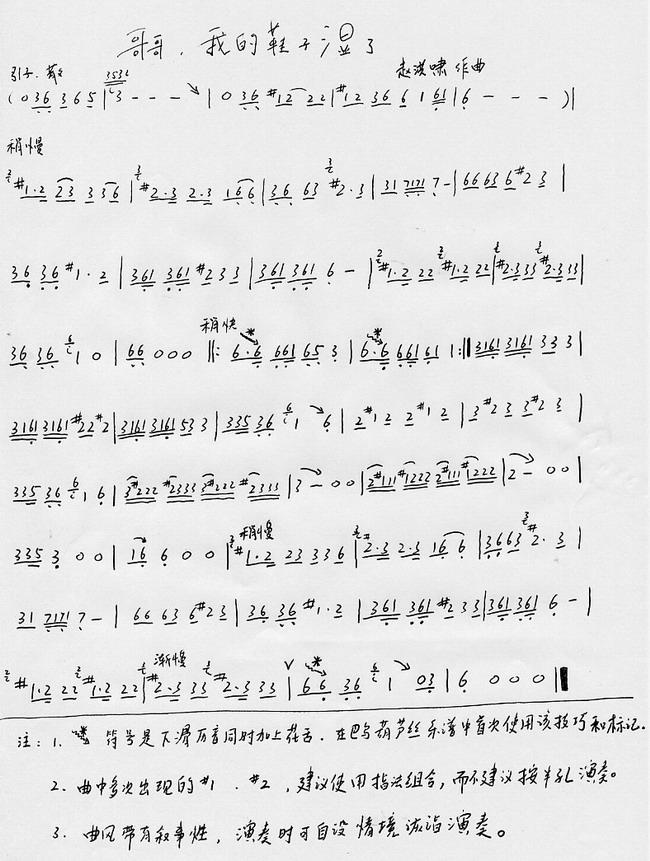 哥哥，我的鞋子湿了
引子.散 3532 赵洪啸 作曲
(0 36 3 6 5 | 3 - - - ↘ | 0 36 #12 22 | #12 36 6 1 61 | 6 - - - )|
稍慢
#1·2 23 3 36 | #2·3 2·3 1 66 | 36 63 #2·3 | 31 7171 7 - | 66636 #2 3 |
36 36 #1·2 | 361 361 #2 3 3 | 361 361 6 - | #1·2 22 #1·2 22 | #2·333 #2·333 |
稍快
36 36 1 0 | 66 0 0 0 ‖: 6·6 661 65 3 | 6·6 661 61 1 :‖ 3161 3161 33 3 |
3161 3161 #22 #2 | 3161 3161 53 3 | 335 36 1 6 | 2 #1 2 2 #1 2 | 3 #2 3 3 #2 3 |
335 36 1 6 | 3#222 #2333 3#222 #2333 | 3 - 0 0 | 2#111 #1222 2#111 #1222 | 2 - 0 0 |
稍慢
335 3 0 0 | 16 6 0 0 | #1·2 23 33 6 | #2·3 2·3 16 6 | 3663 #2·3 |
31 7171 7 - | 66 63 6 #23 | 36 36 #1·2 | 361 361 #2 3 3 | 361 361 6 - |
渐慢
#1·2 22 #1·2 22 | #2·3 33 #2·3 33 | 66 36 1 03 | 6 0 0 0 ‖
注：1. 符号是下滑历音同时加上花舌．在巴乌葫芦丝乐谱中首次使用该技巧和标记．
2. 曲中多次出现的#1．#2，建议使用指法组合，而不建议按半孔演奏。
3. 曲风带有叙事性，演奏时可自设情境诙谐演奏。